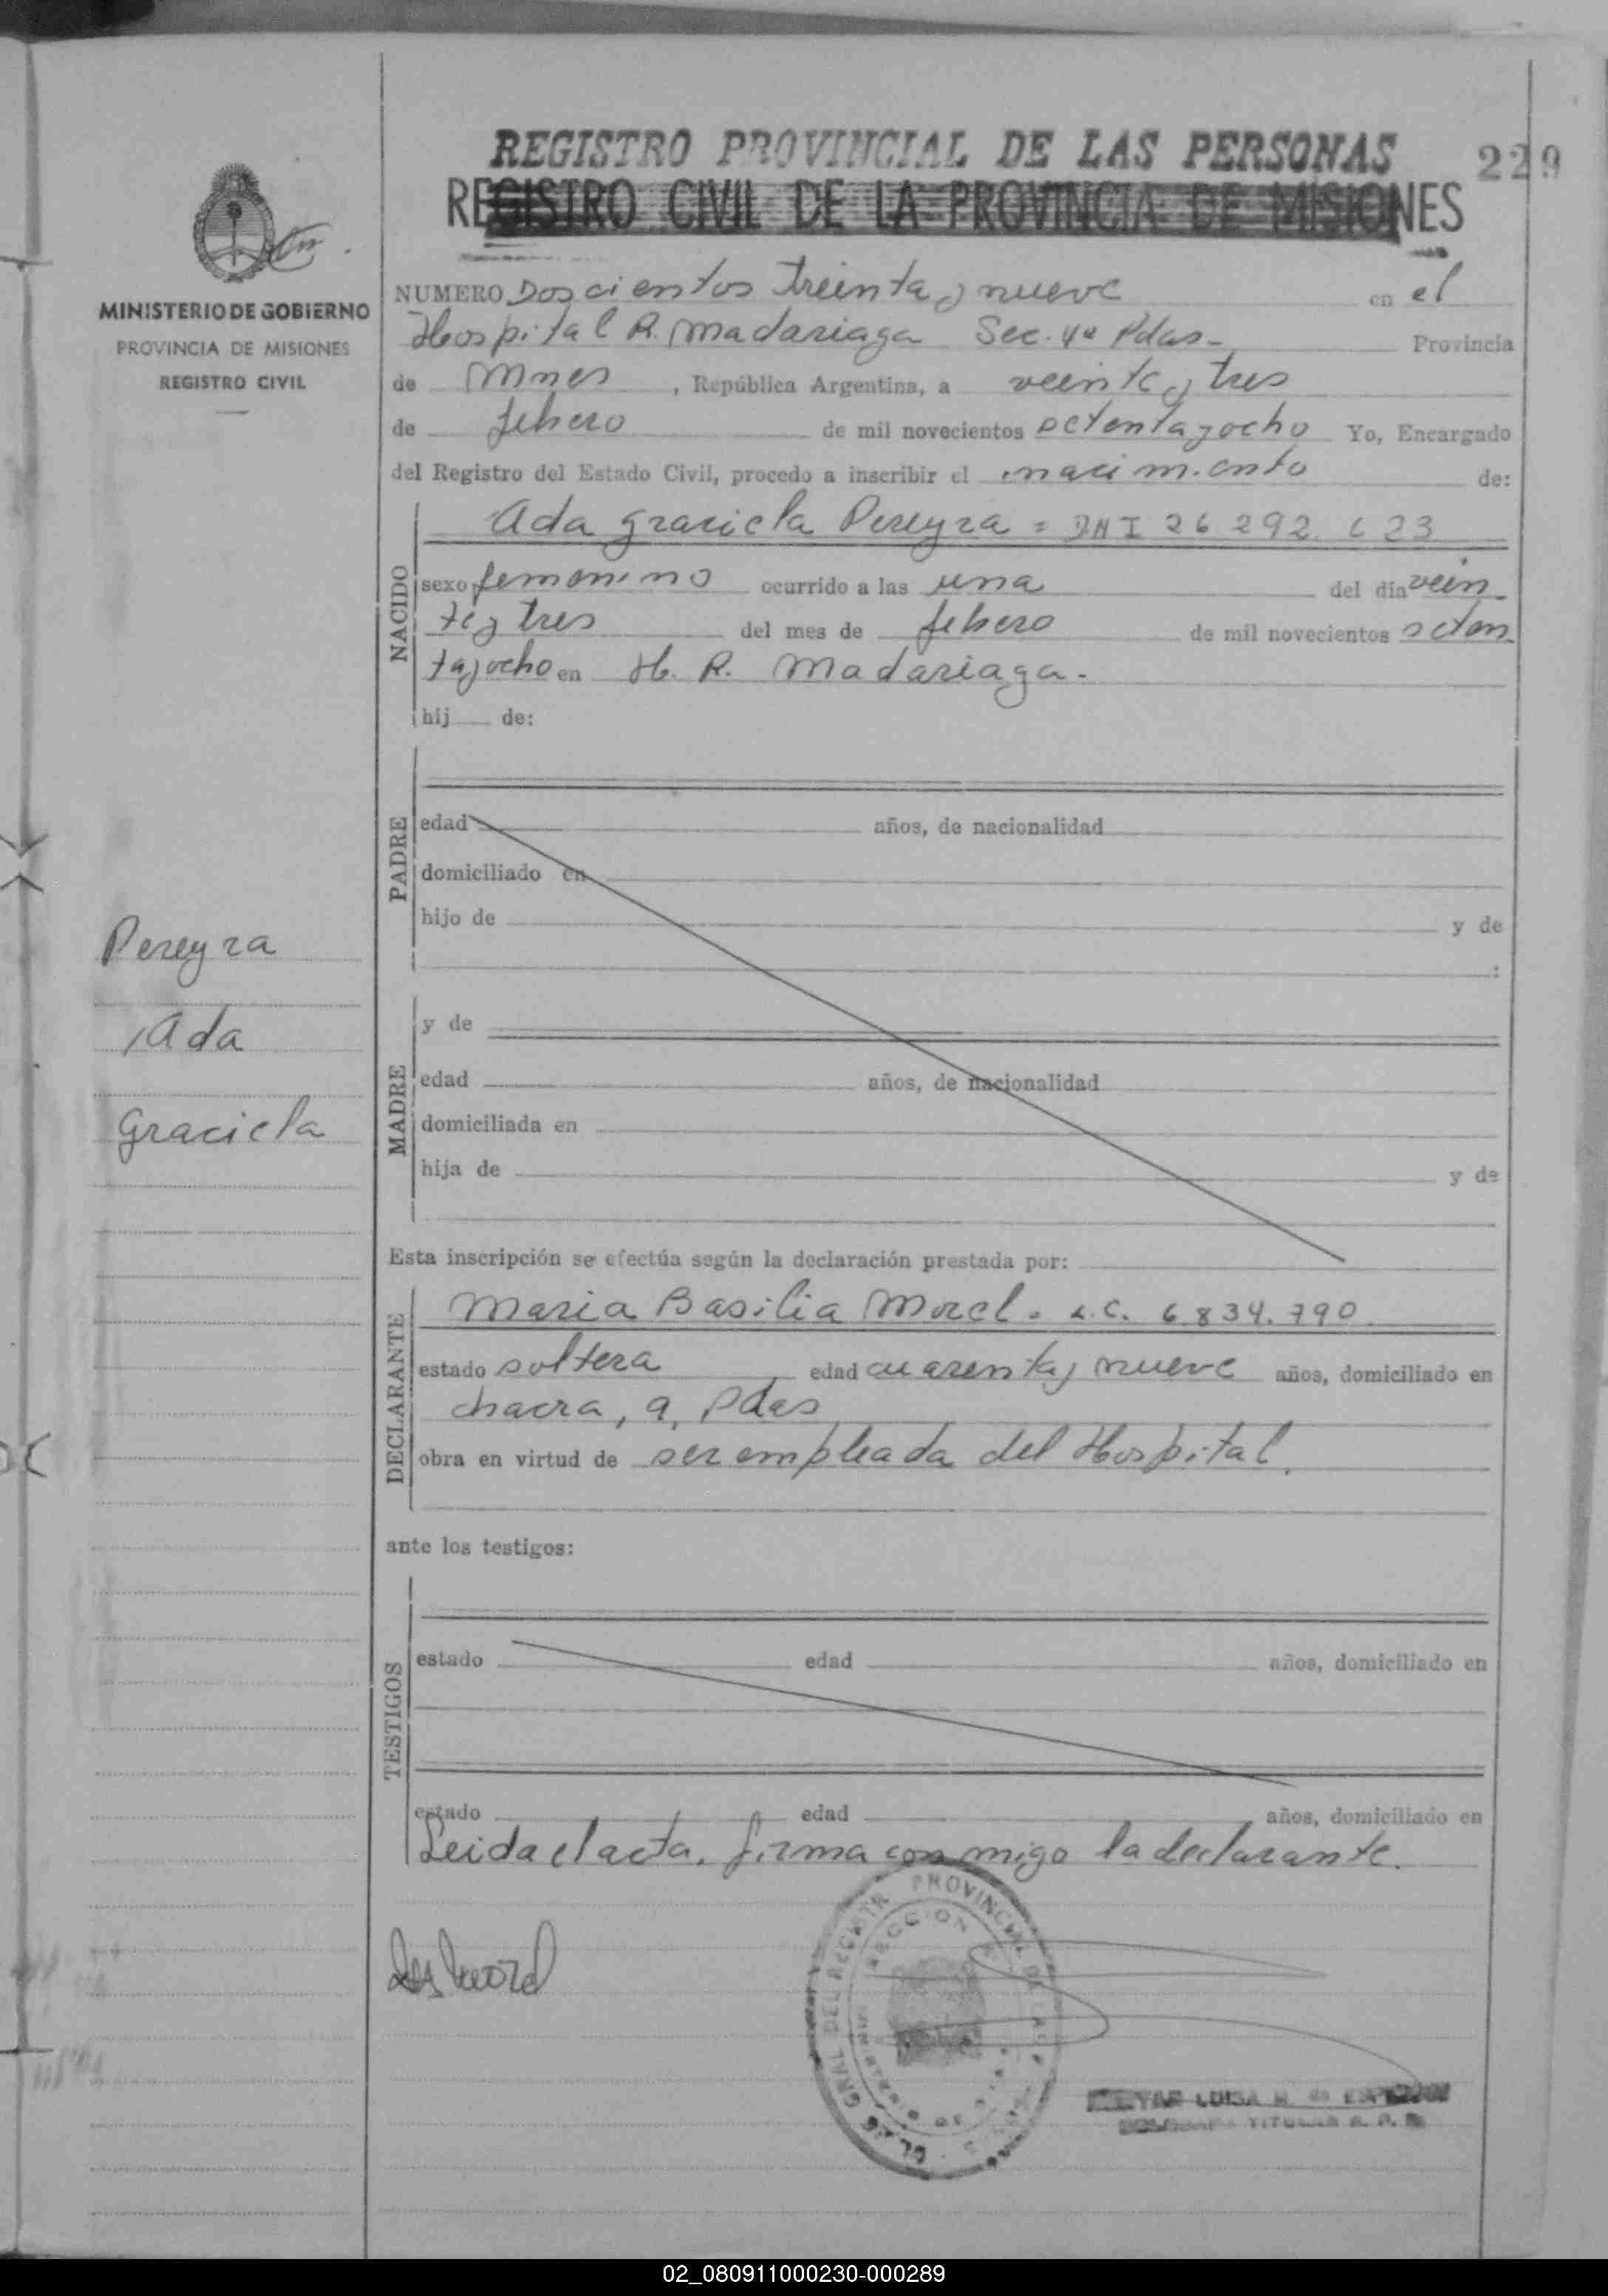 REGISTRO PROVINCIAL DE LAS PERSONAS
229
REGISTRO CIVIL DE LA PROVINCIA DE MISIONES
MINISTERIO DE GOBIERNO
PROVINCIA DE MISIONES
REGISTRO CIVIL
NUMERO Doscientos treinta y nueve en el
Hospital R. Madariaga Sec. 4a Pdas- Provincia
de Mnes, República Argentina, a veinte y tres
de febrero de mil novecientos octenta y ocho Yo, Encargado
del Registro del Estado Civil, procedo a inscribir el nacimiento de:
NACIDO
Ada Graciela Pereyra = DNI 26 292. 623
sexo femenino ocurrido a las una del día vein
te y tres del mes de febrero de mil novecientos octen
ta y ocho en H. R. Madariaga.
hij de:
PADRE
edad años, de nacionalidad
domiciliado en
hijo de y de
:
Pereyra
Ada
Graciela
MADRE
y de
edad años, de nacionalidad
domiciliada en
hija de y de
Esta inscripción se efectúa según la declaración prestada por:
DECLARANTE
Maria Basilia Morel. L.C. 6.834.790
estado soltera edad cuarenta y nueve años, domiciliado en
chacra, 9, Pdas
obra en virtud de ser empleada del Hospital.
ante los testigos:
TESTIGOS
estado edad años, domiciliado en
estado edad años, domiciliado en
Leida el acta, firma conmigo la declarante.
Morel
PROVINCIAL DE LAS
LUISA M. de
TITULAR R. P.
02_080911000230-000289